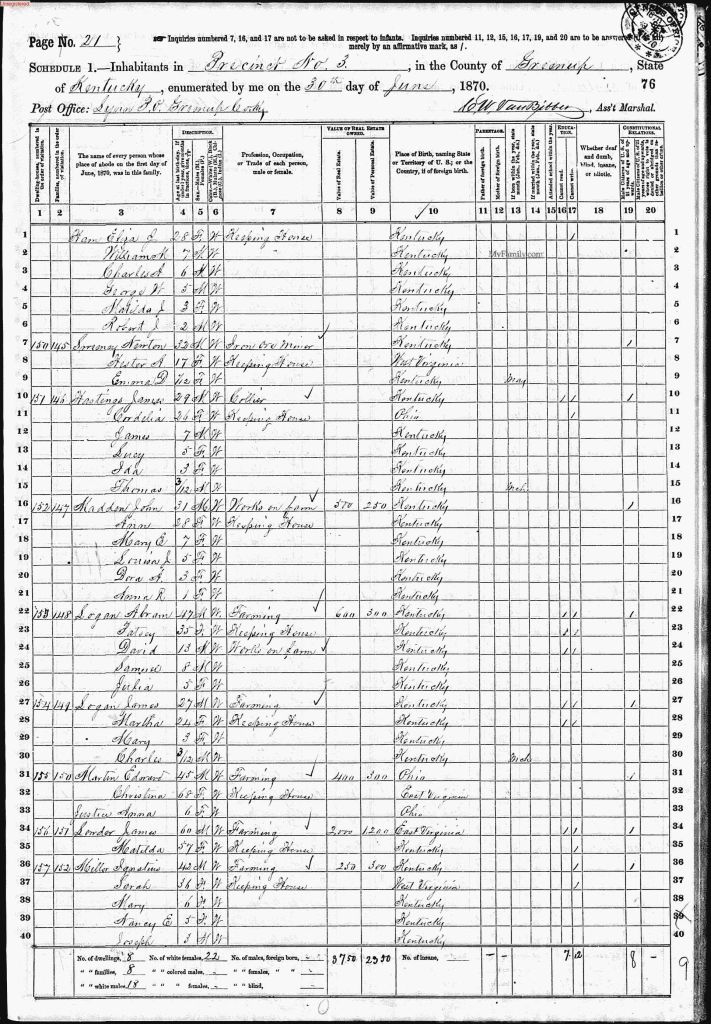 Unregistered
Page No. 21
Inquiries numbered 7, 16, and 17 are not to be asked in respect to infants. Inquiries numbered 11, 12, 15, 16, 17, 19, and 20 are to be answered
merely by an affirmative mark, as /.
SCHEDULE 1.—Inhabitants in Precinct No. 3, in the County of Greenup, State
of Kentucky, enumerated by me on the 30th day of June, 1870. 76
Post Office: Lynn P.O. Greenup Ass't Marshal.
DESCRIPTION. VALUE OF REAL ESTATE OWNED. PARENTAGE. EDUCATION. CONSTITUTIONAL RELATIONS.
Dwelling-houses, numbered in the order of visitation. Families, numbered in the order of visitation. The name of every person whose place of abode on the first day of June, 1870, was in this family. Profession, Occupation, or Trade of each person, male or female. Value of Real Estate. Value of Personal Estate. Place of Birth, naming State or Territory of U. S.; or the Country, if of foreign birth. Father of foreign birth. Mother of foreign birth. Attended school within the year. Cannot read. Cannot write. Whether deaf and dumb, blind, insane, or idiotic.
1 2 3 4 5 6 7 8 9 10 11 12 13 14 15 16 17 18 19 20
1 Ham Eliza J 28 F W Keeping House Kentucky / 1
2 William H 7 M W Kentucky MyFamily.com 2
3 Charles A 6 M W Kentucky 3
4 George W 5 M W Kentucky 4
5 Matilda J 3 F W Kentucky 5
6 Robert J 2 M W Kentucky 6
7 150 145 Sweeney Newton 32 M W Iron Ore Miner Kentucky / 7
8 Hester A 17 F W Keeping House West Virginia 8
9 Emma D /12 F W Kentucky May 9
10 151 146 Hastings James 29 M W Collier Kentucky / / / 10
11 Cordelia 26 F W Keeping House Ohio / 11
12 James 7 M W Kentucky 12
13 Lucy 5 F W Kentucky 13
14 Ida 3 F W Kentucky 14
15 Thomas 3/12 M W Kentucky Mch 15
16 152 147 Madden John 31 M W Works on farm 500 250 Kentucky / 16
17 Ann 28 F W Keeping House Kentucky 17
18 Mary E 7 F W Kentucky 18
19 Louisa J 5 F W Kentucky 19
20 Dora A 3 F W Kentucky 20
21 Anna R 1 F W Kentucky 21
22 153 148 Logan Abram 47 M W Farming 600 300 Kentucky / / / 22
23 Patsey 35 F W Keeping House Kentucky / / 23
24 David 13 M W Works on farm Kentucky / / 24
25 Samuel 8 M W Kentucky 25
26 Julia 5 F W Kentucky 26
27 154 149 Logan James 27 M W Farming Kentucky / / / 27
28 Martha 24 F W Keeping House Kentucky / / 28
29 Mary 3 F W Kentucky 29
30 Charles 3/12 M W Kentucky Mch 30
31 155 150 Martin Edward 45 M W Farming 400 300 Ohio / 31
32 Christina 68 F W Keeping House East Virginia 32
33 Anna 6 F W Ohio 33
34 156 151 Lowder James 60 M W Farming 2,000 1200 East Virginia / / / 34
35 Matilda 57 F W Keeping House Kentucky / 35
36 157 152 Miller Ignatius 42 M W Farming 250 300 Kentucky / / / 36
37 Sarah 36 F W Keeping House West Virginia / 37
38 Mary 6 F W Kentucky 38
39 Nancy E 5 F W Kentucky 39
40 Joseph 3 M W Kentucky 40
No. of dwellings, 8 No. of white females, 22 No. of males, foreign born, - 3750 2350 No. of insane, - 7 12 8 -
" " families, 8 " " colored males, - " " females, " " -
" " white males, 18 " " " females, - " " blind, -
9